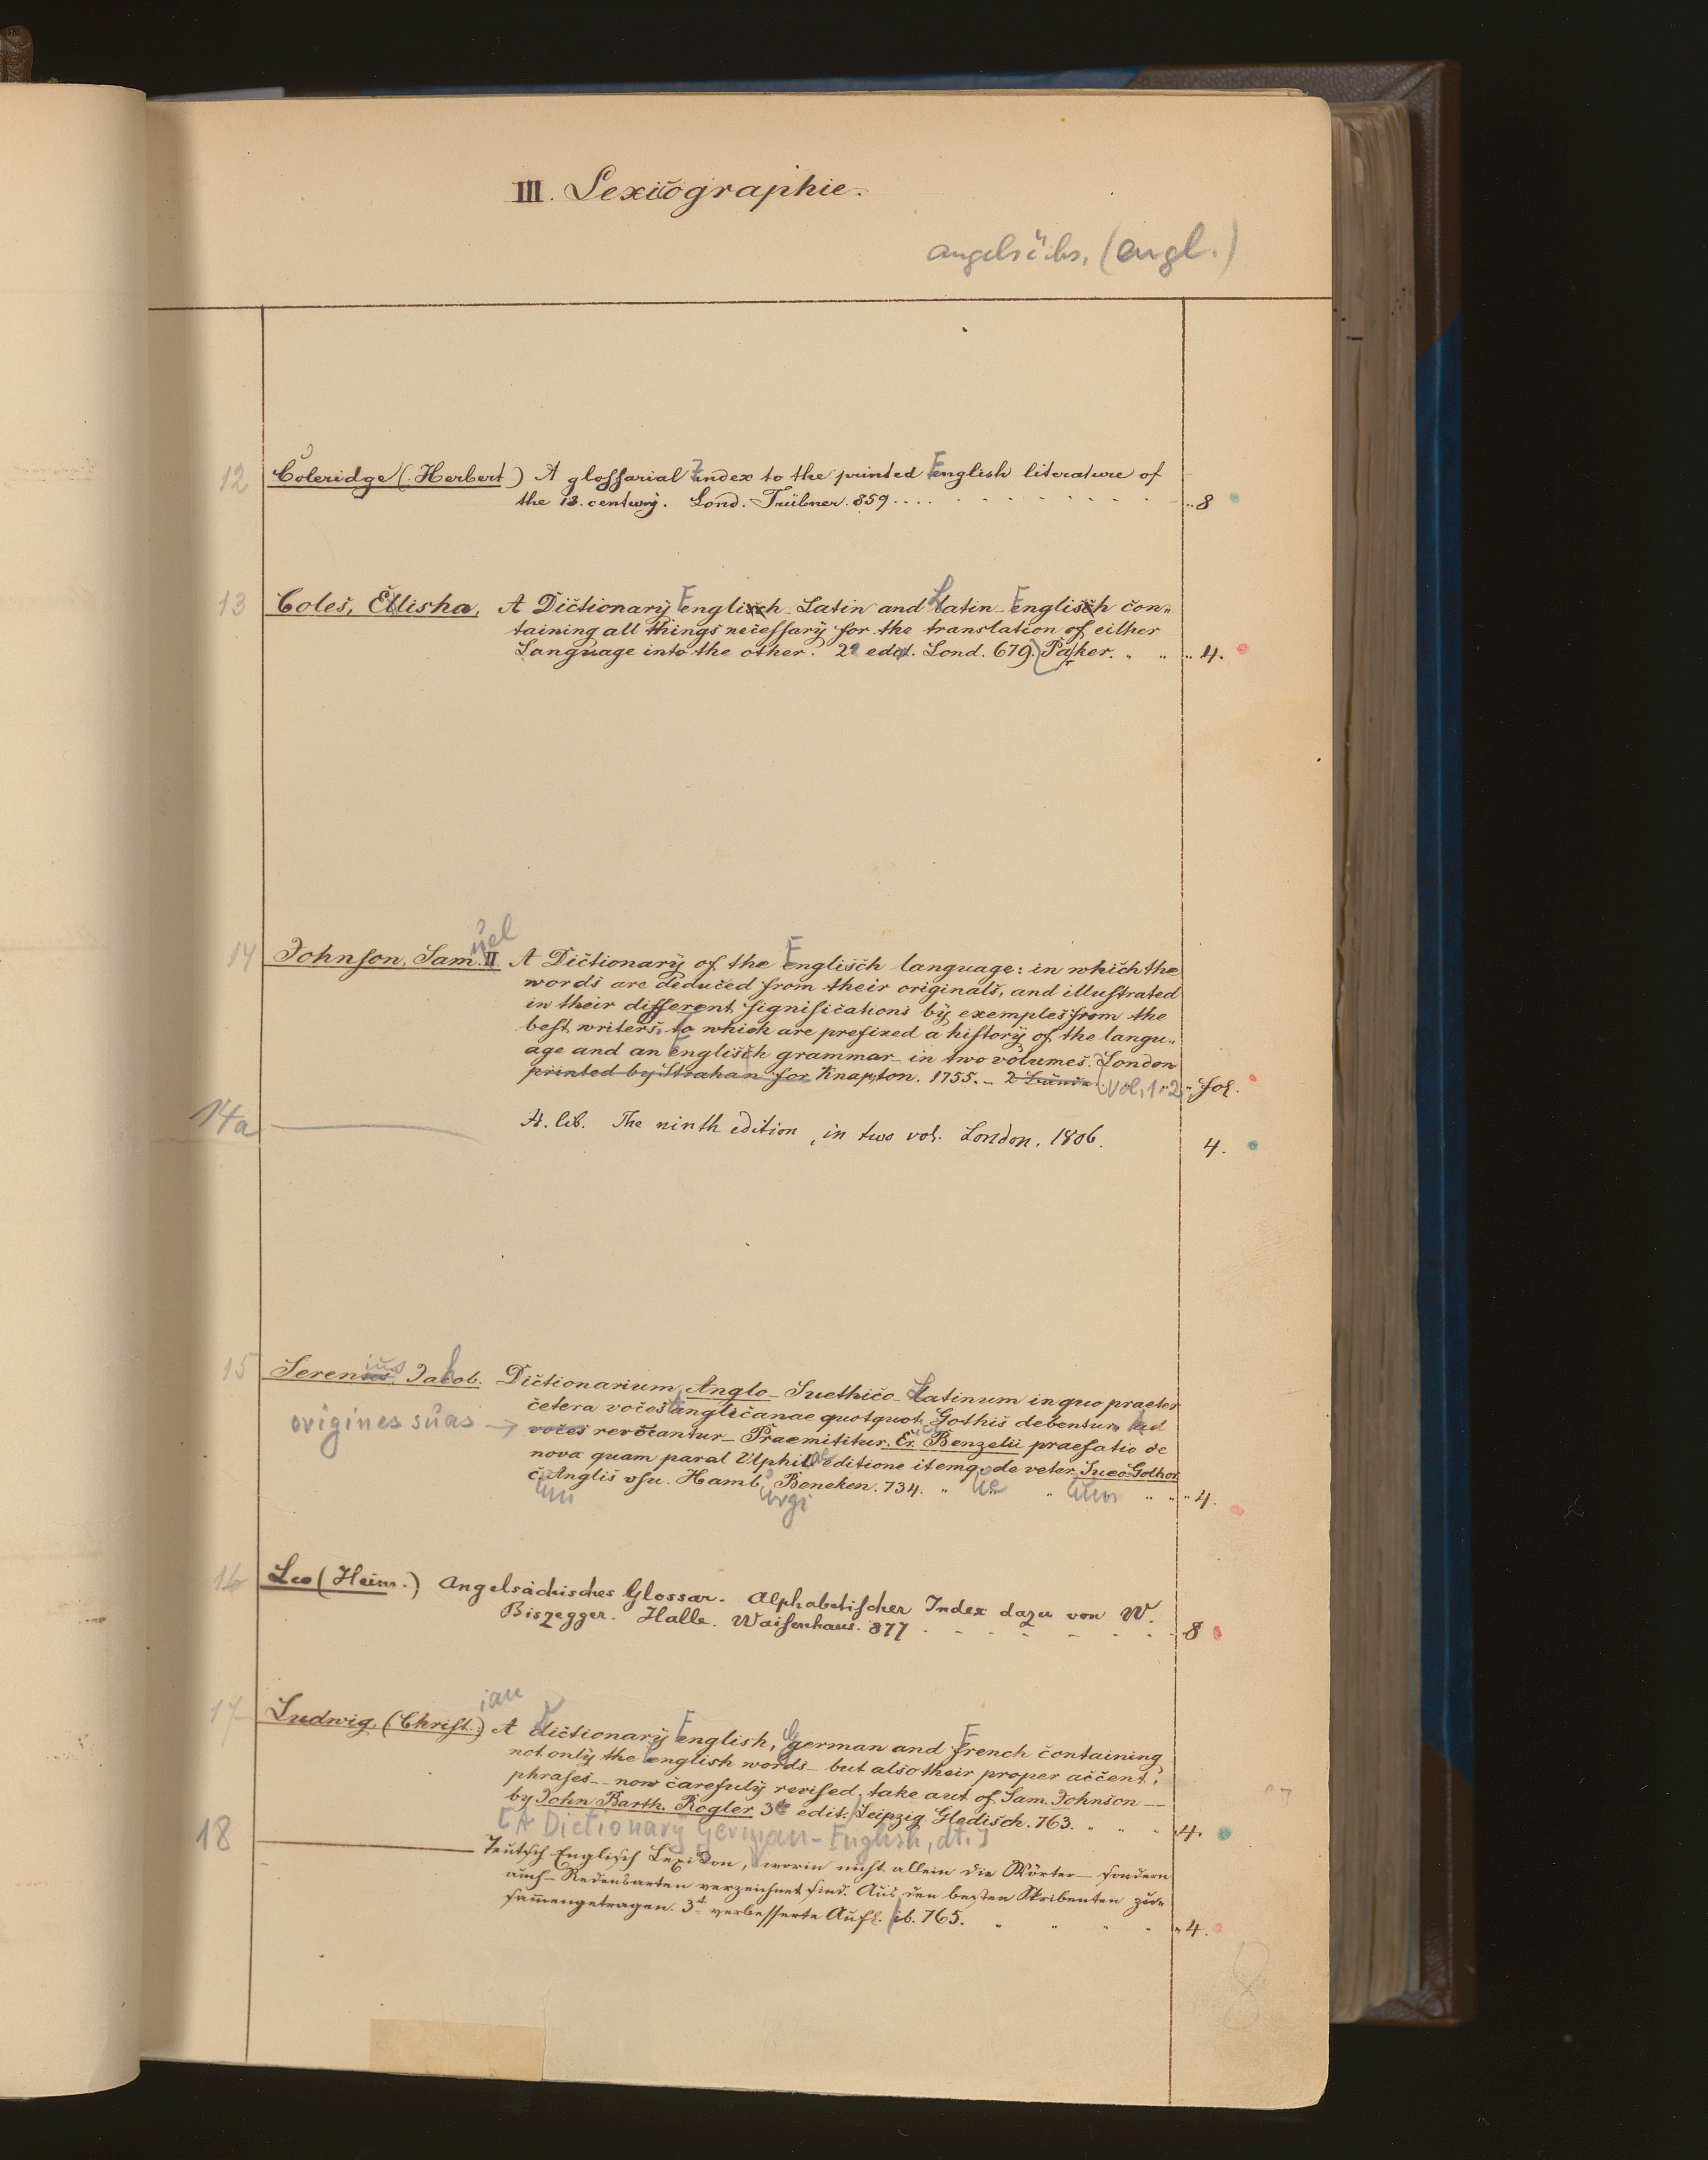 III. Lexicographie.
angelsächs. (engl.)
12 Coleridge (Herbert) A glossarial Index to the printed English literature of
the 13. century. Lond. Trübner. 859 . . . . 8
13 Coles, Elisha, A Dictionary English-Latin and Latin-English con„
taining all things necessary for the translation of either
Language into the other. 2d edit. Lond. 679. Parker. „ „ „ 4.
14 Johnson, Samuel II A Dictionary of the English language: in which the
words are deduced from their originals, and illustrated
in their different significations by exemples from the
best writers. To which are prefixed a history of the langu„
age and an English grammar in two volumes. London
printed by Strahan for Knapton. 1755. – 2 Bände. Vol. 1. 2 fol.
14a A. lib. The ninth edition, in two vol. London. 1806. 4.
15 Serenius, Jakob. Dictionarium Anglo-Suethico-Latinum in quo praeter
cetera voces Anglicanae quotquot Gothis debentur, ad
origines suas → voces revocantur – Praemittitur. Er. Benzelii praefatio de
nova quam parat Ulphilae editione itemq. de veter. Sueo-Gothor.
c. Anglis usu. Hamb. Beneken. 734. „ „ „ „ 4.
16 Leo (Heinr.) Angelsächisches Glossar. Alphabetischer Index dazu von W.
Biszegger. Halle. Waisenhaus. 877 . - - - - - 8
17 Ludwig, (Christian) A Dictionary English, German and French containing
not only the English words – but also their proper accent,
phrases – now carefuly revised, take aut of Sam. Johnson –
by John Barth. Rogler 3d edit. Leipzig Gleditsch. 763. „ „ „ „ 4.
[A Dictionary German-English, dt.]
18 Teutsch-Englisch Lexikon, worin nicht allein die Wörter – sondern
auch – Redensarten verzeichnet sind. Aus den besten Skribenten zu„
sammengetragen. 3t verbesserte Aufl. ib. 765. „ „ „ „ 4.
8